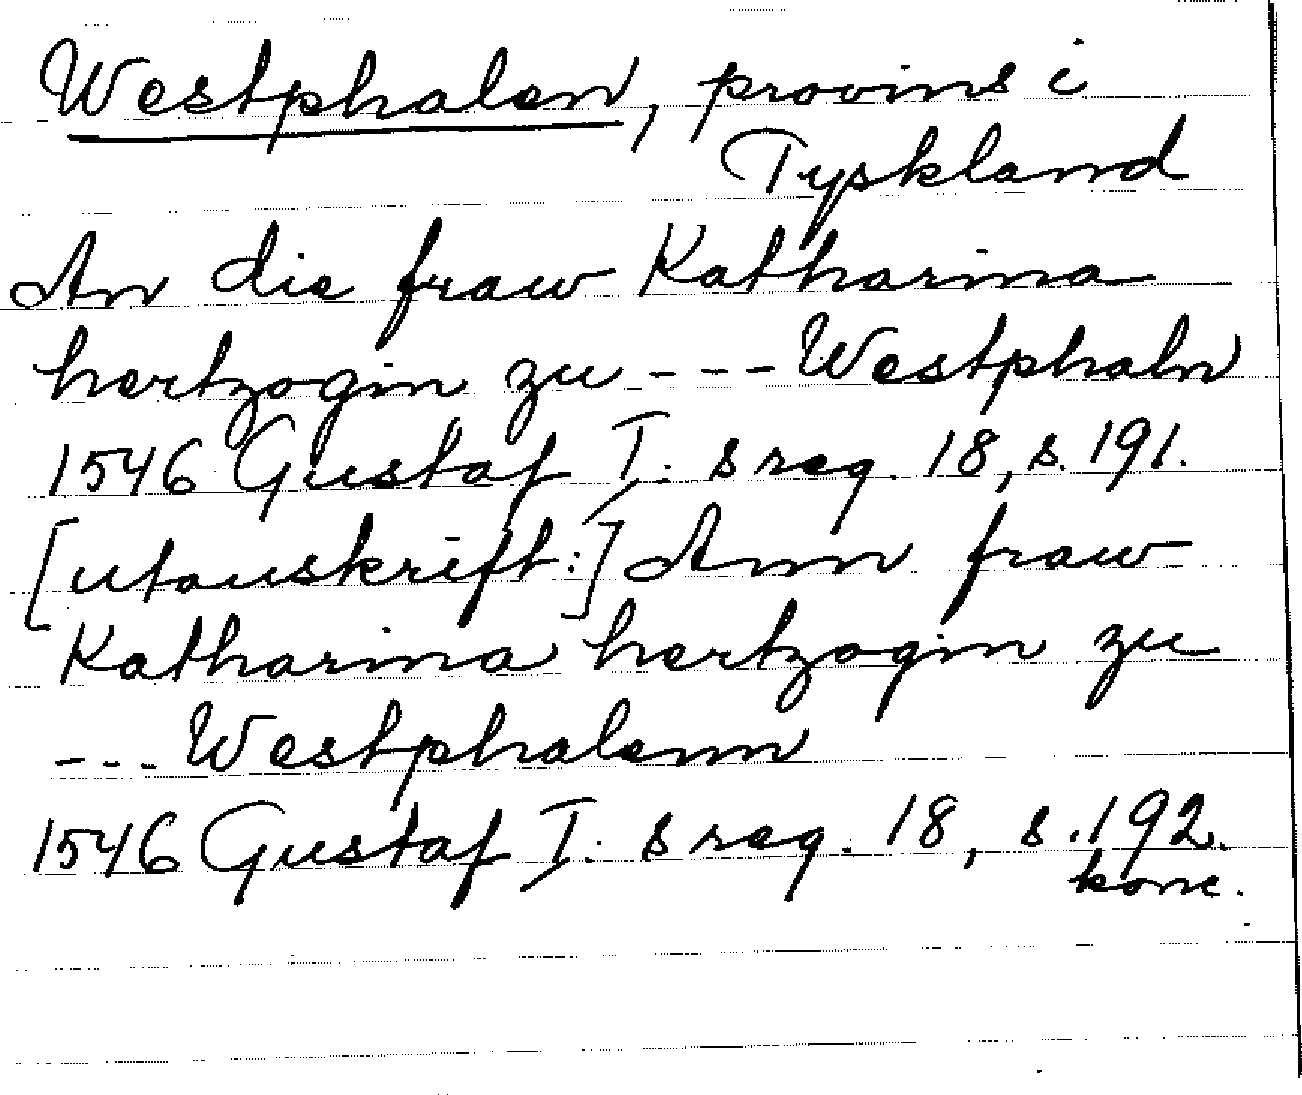 Westphalen, provins i
Tyskland
An die fraw Katharina
hertzogin zu - - - Westphaln
1546 Gustaf I:s reg. 18, s. 191.
[utanskrift:] Ann fraw
Katharina hertzogin zu
- - - Westphalenn
1546 Gustaf I:s reg. 18, s. 192.
konc.